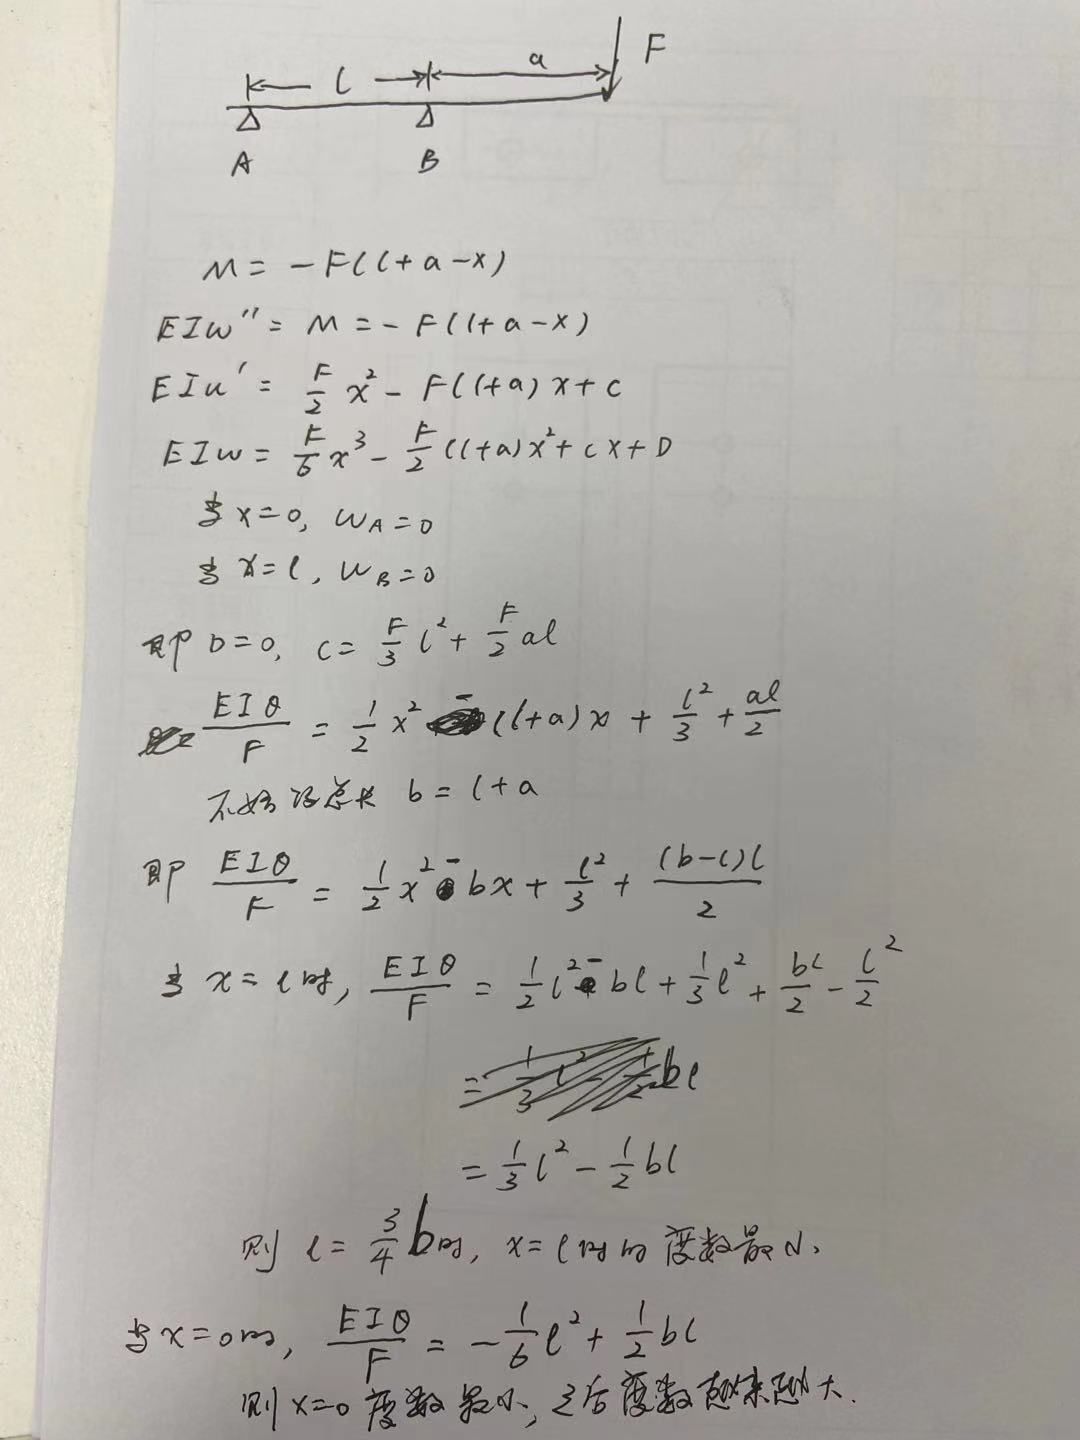 l a F
A B
M = -F(l+a-x)
EIw'' = M = -F(l+a-x)
EIw' = F/2 x² - F(l+a)x + C
EIw = F/6 x³ - F/2 (l+a)x² + Cx + D
当 x=0, w_A=0
当 x=l, w_B=0
即 D=0, C= F/3 l² + F/2 al
EIθ/F = 1/2 x² - (l+a)x + l²/3 + al/2
不妨设总长 b = l+a
即 EIθ/F = 1/2 x² - bx + l²/3 + (b-l)l/2
当 x=l时, EIθ/F = 1/2 l² - bl + 1/3 l² + bl/2 - l²/2
= 1/3 l² - 1/2 bl
则 l = 3/4 b时, x=l时的度数最小.
当x=0时, EIθ/F = -1/6 l² + 1/2 bl
则 x=0 度数最小, 之后度数越来越大.